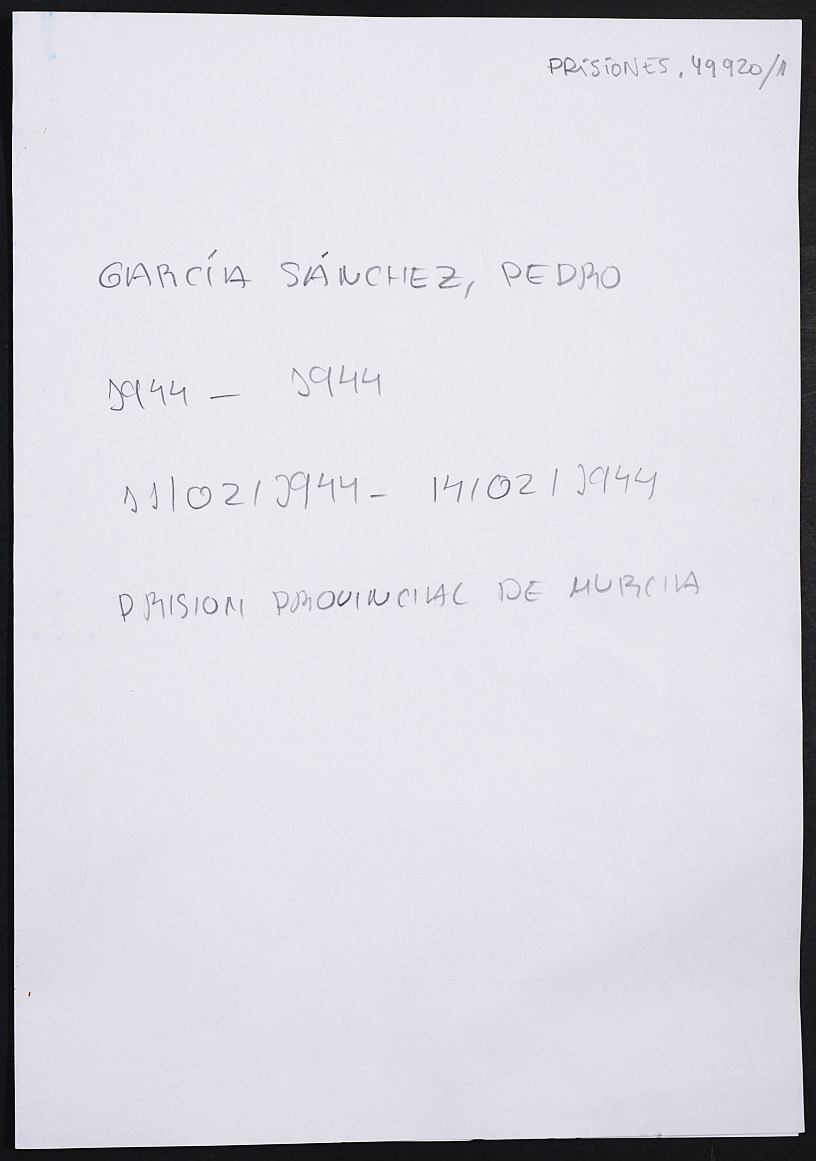 PRISIONES, 49920/1
GARCÍA SÁNCHEZ, PEDRO
1944 - 1944
11/02/1944 - 14/02/1944
PRISION PROVINCIAL DE MURCIA